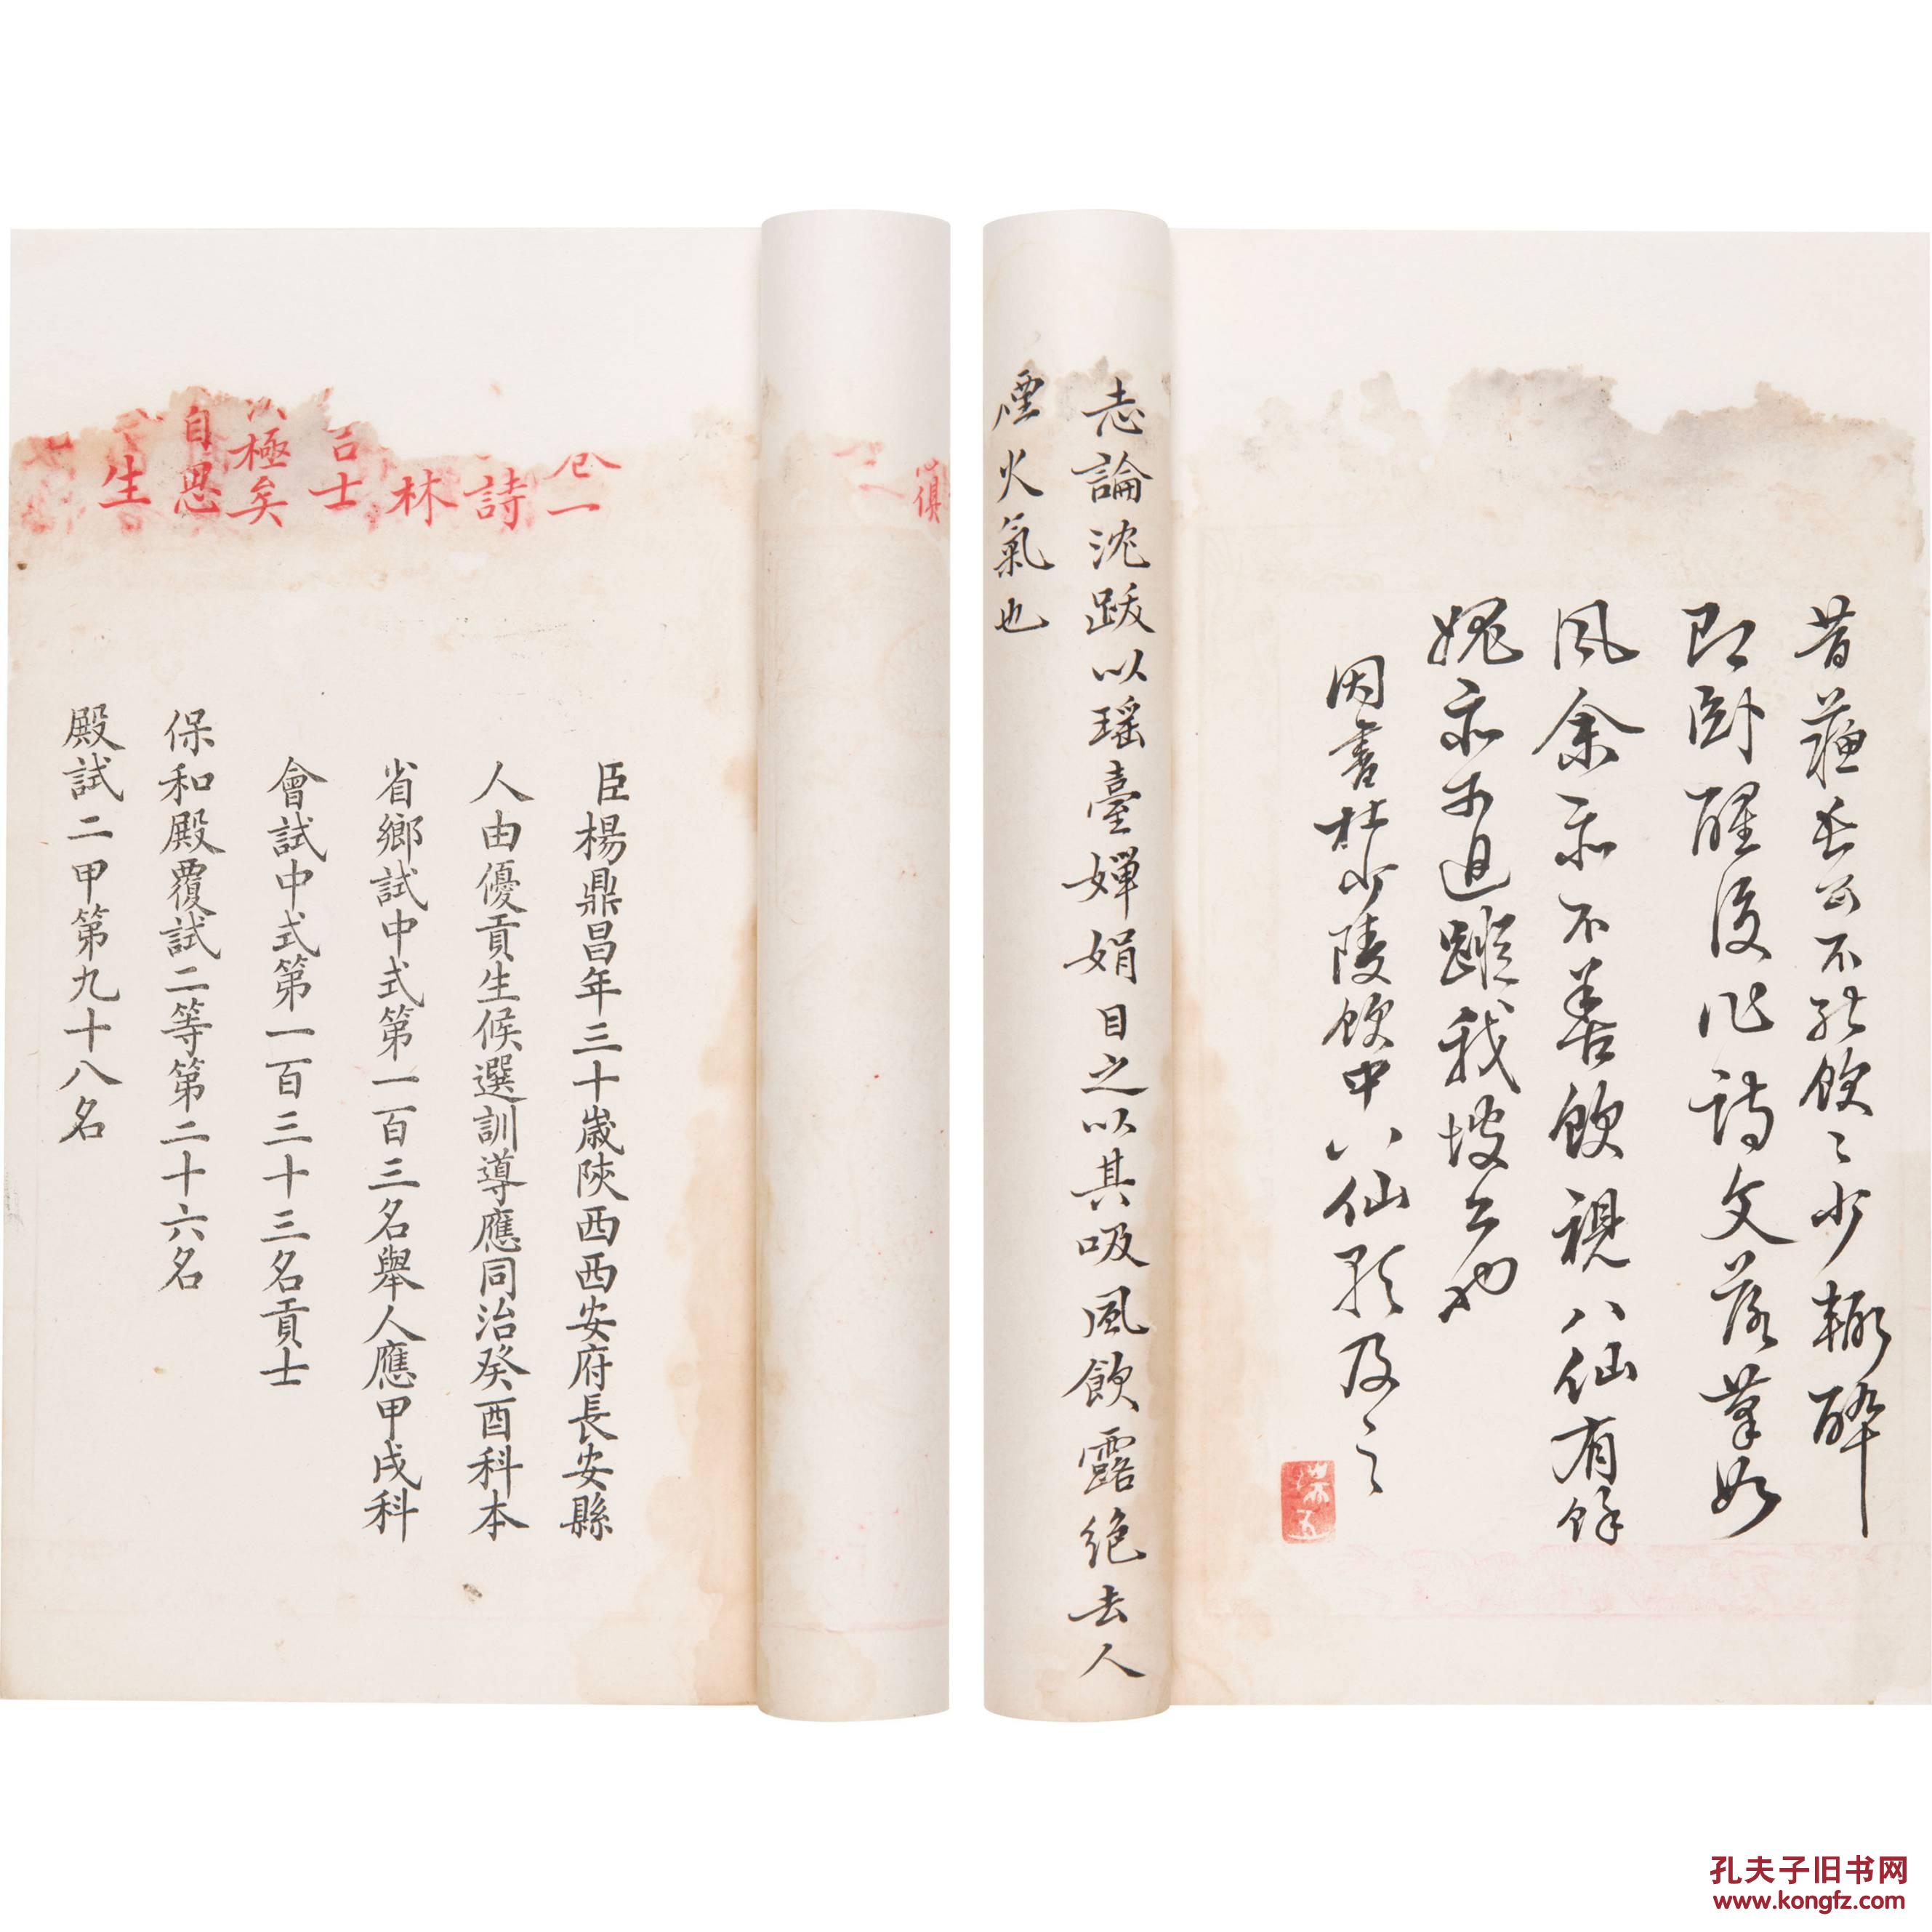 昔蘇長公不能飲飲少輒醉
即卧醒後作詩文落筆如
風余亦不善飲視八仙有餘
媿亦可追蹤我坡公也
因書杜少陵飲中八仙歌及之
志論沈跋以瑶臺嬋娟目之以其吸風飲露絕去人
煙火氣也
臣楊鼎昌年三十歲陝西西安府長安縣
人由優貢生候選訓導應同治癸酉科本
省鄉試中式第一百三名舉人應甲戌科
會試中式第一百三十三名貢士
保和殿覆試二等第二十六名
殿試二甲第九十八名
詩
林
士
極矣
自思
生
孔夫子旧书网
www.kongfz.com